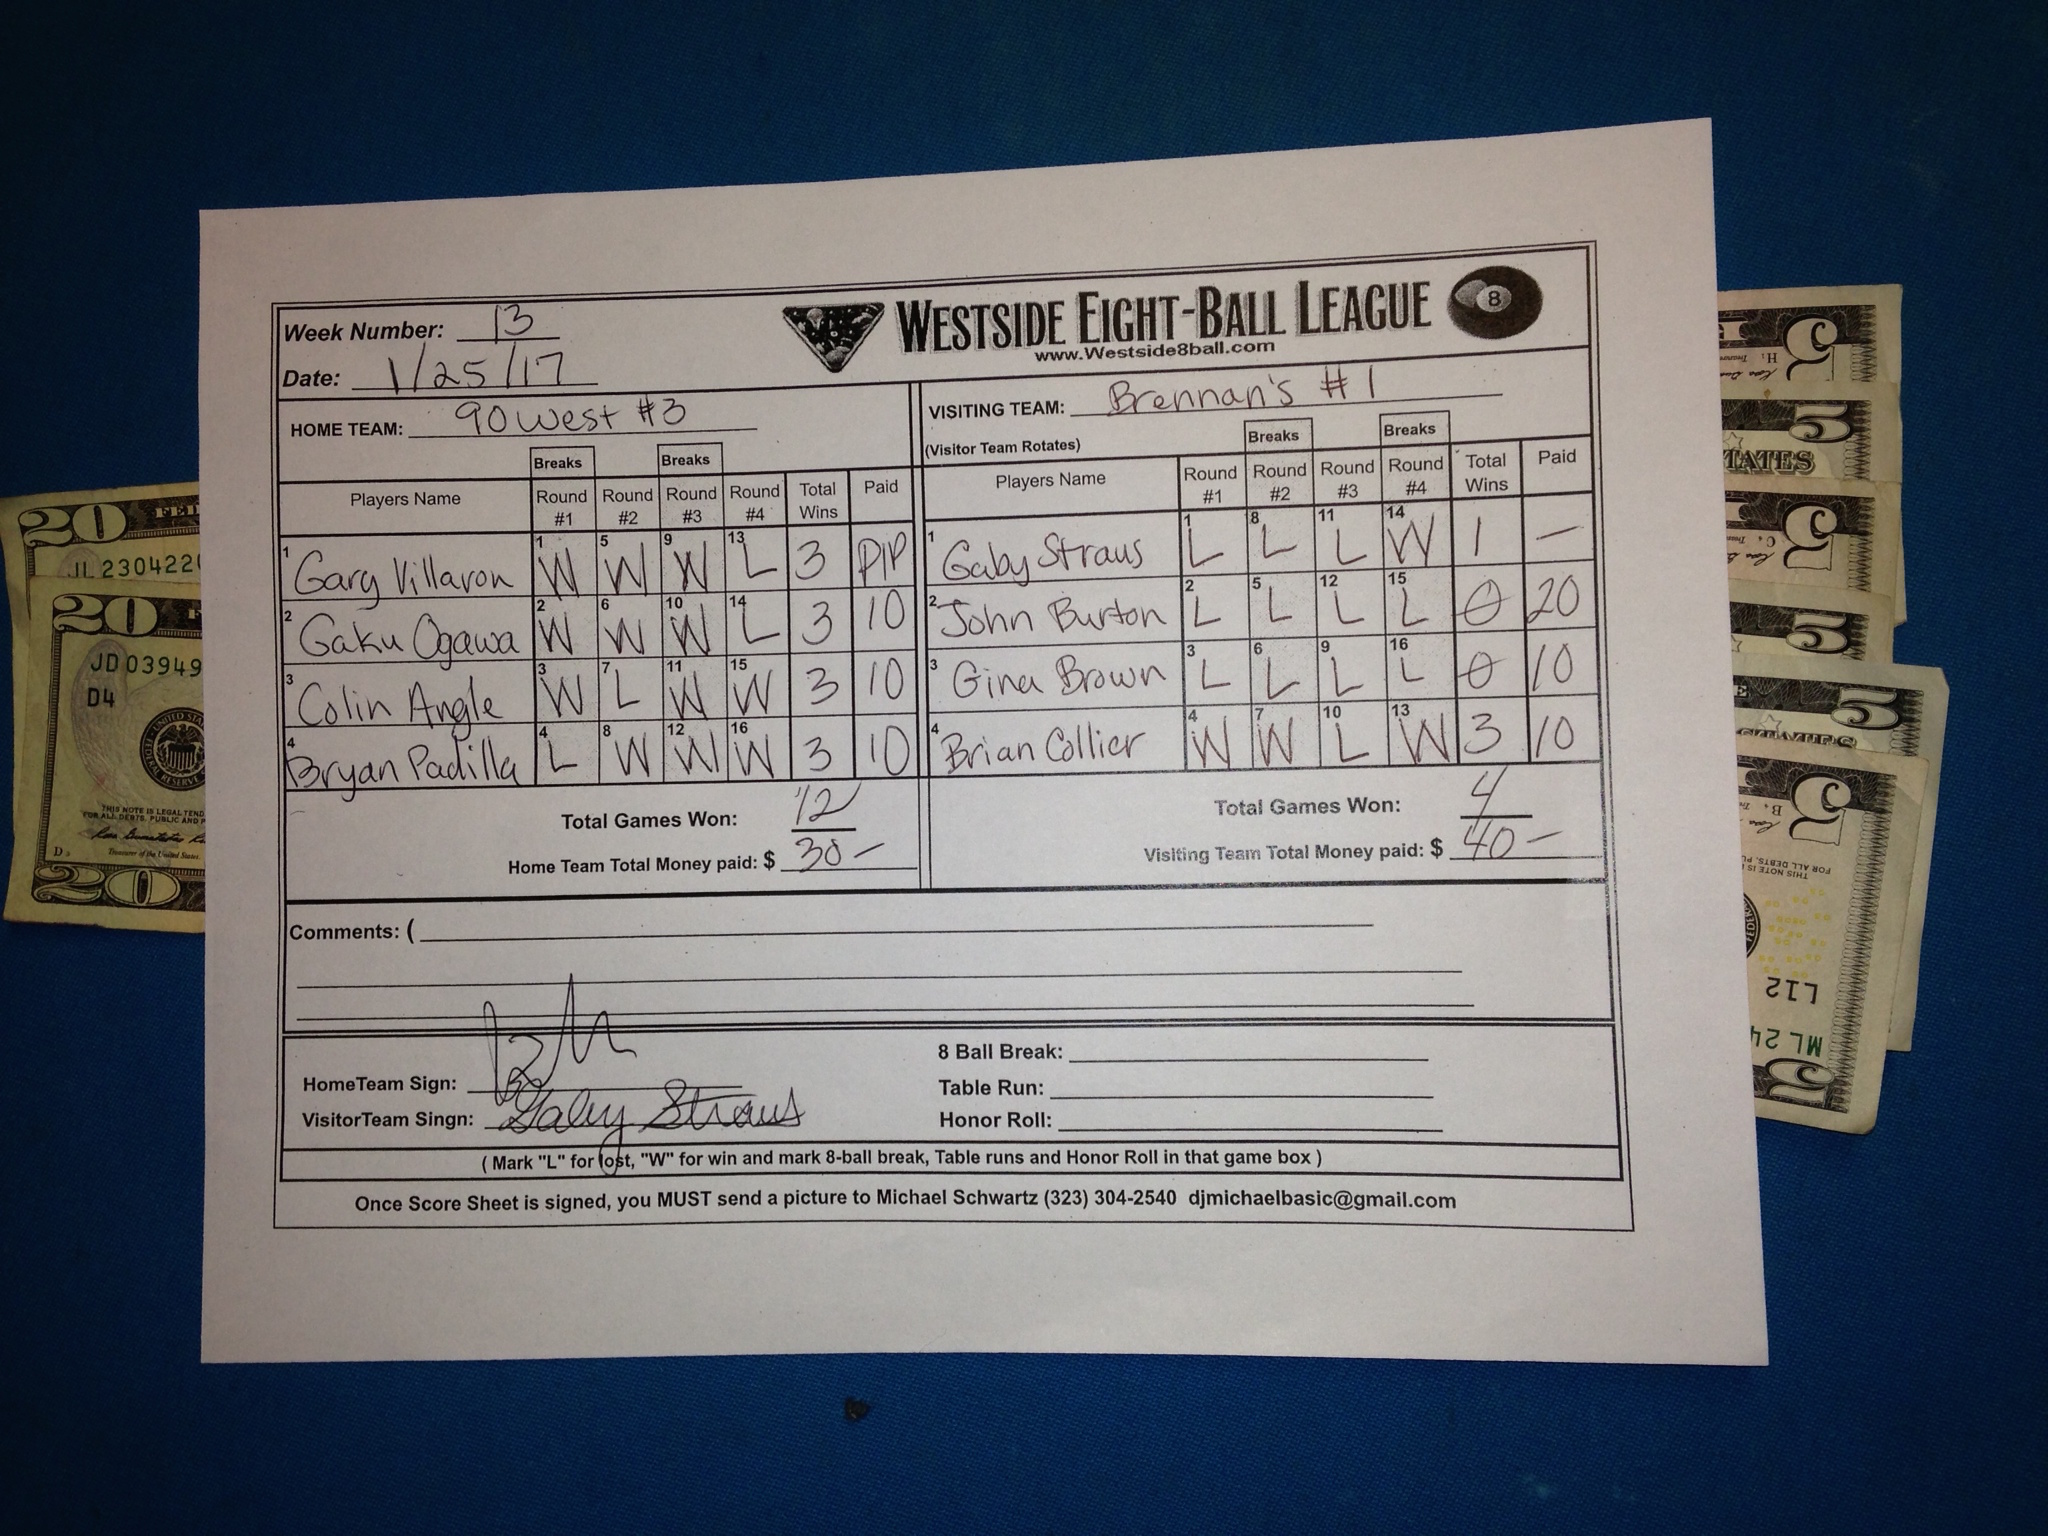 Week Number: 13
Date: 1/25/17
WESTSIDE EIGHT-BALL LEAGUE 8
www.Westside8ball.com
HOME TEAM: 90 West #3
VISITING TEAM: Brennan's #1
(Visitor Team Rotates)
Breaks Breaks
Players Name Round #1 Round #2 Round #3 Round #4 Total Wins Paid
1 Gary Villaron 1 W 5 W 9 W 13 L 3 PIP
2 Gaku Ogawa 2 W 6 W 10 W 14 L 3 10
3 Colin Angle 3 W 7 L 11 W 15 W 3 10
4 Bryan Padilla 4 L 8 W 12 W 16 W 3 10
Total Games Won: 12
Home Team Total Money paid: $ 30-
Breaks Breaks
Players Name Round #1 Round #2 Round #3 Round #4 Total Wins Paid
1 Gaby Straus 1 L 8 L 11 L 14 W 1 -
2 John Burton 2 L 5 L 12 L 15 L 0 20
3 Gina Brown 3 L 6 L 9 L 16 L 0 10
4 Brian Collier 4 W 7 W 10 L 13 W 3 10
Total Games Won: 4
Visiting Team Total Money paid: $ 40-
Comments: (
HomeTeam Sign:
VisitorTeam Singn: Gaby Straus
8 Ball Break:
Table Run:
Honor Roll:
( Mark "L" for lost, "W" for win and mark 8-ball break, Table runs and Honor Roll in that game box )
Once Score Sheet is signed, you MUST send a picture to Michael Schwartz (323) 304-2540 djmichaelbasic@gmail.com
20
JL 230422
20
JD 03949
D4
THIS NOTE IS LEGAL TEND
FOR ALL DEBTS, PUBLIC AND P
Treasurer of the United States.
20
5
5
TATES
5
5
5
5
FOR ALL DEBTS, PU
THIS NOTE IS
L12
ML 24
5